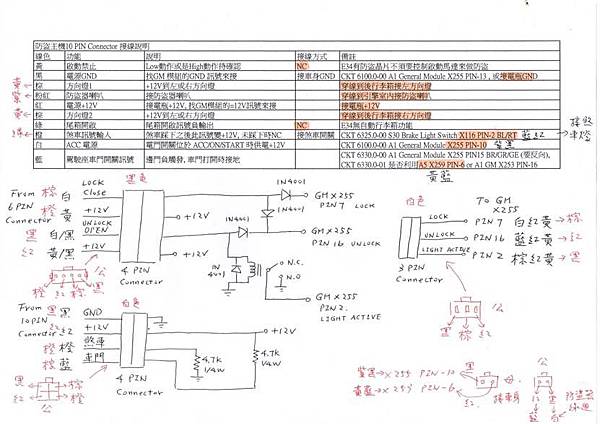 防盜主機10 PIN Connector 接線說明
線色 功能 說明 接線方式 備註
黃 啟動禁止 Low動作或是High動作待確認 NC E34有防盜晶片不須要控制啟動馬達來做防盜
黑 電源GND 找GM 模組的GND 訊號來接 接車身GND CKT 6100.0-00 A1 General Module X255 PIN-13 , 或接電瓶GND
棕 方向燈1 +12V到左或右方向燈 穿線到後行李箱接左方向燈
粉紅 防盜器喇叭 接防盜器喇叭 穿線到引擎室內接防盜喇叭
紅 電源+12V 接電瓶+12V, 找GM模組的=12V訊號來接 接電瓶+12V
棕 方向燈2 +12V到左或右方向燈 穿線到後行李箱接右方向燈
綠 尾箱開啟 尾箱開啟訊號負輸出 NC E34無自動行李箱功能
橙 煞車訊號輸入 煞車踩下之後此訊號變+12V, 未踩下時NC 接煞車開關 CKT 6325.0-00 S30 Brake Light Switch X116 PIN-2 BL/RT 藍紅
白 ACC 電源 電門開關位於 ACC/ON/START 時供電+12V CKT 6100.0-00 A1 General Module X255 PIN-10
藍 駕駛座車門開關訊號 邊門負觸發, 車門打開時接地 CKT 6330.0-00 A1 General Module X255 PIN15 BR/GR/GE (要反向),
CKT 6330.0-01 是否利用A5 X259 PIN-6 or A1 GM X253 PIN-16
黃藍
From 6 PIN Connector
棕 白 LOCK Close
橙 黃 +12V
黑 白/黑 UNLOCK OPEN
紅 黃/黑 +12V
黑色
+12V
4 PIN Connector
公
橙 紅 棕 黑
1N4001
1N4001
1N4001
GM X255 PIN 7 LOCK
GM X255 PIN 16 UNLOCK
N.C.
N.O
GM X255 PIN 2. LIGHT ACTIVE
白色
TO GM X255
LOCK PIN 7 白紅黃→棕
UNLOCK PIN 16 藍紅黃→紅
LIGHT ACTIVE PIN 2 棕紅黃→黑
3 PIN Connector
公
黑 棕 紅
From 10 PIN Connector
黑 黑 GND
紅 紅 +12V
橙 橙 煞車
棕 藍 車門
白色
4 PIN Connector
+12V
4.7K 1/4W
4.7K 1/4W
黑 棕
紅 橙
公
紫黑→X255 PIN-10
黃藍→X253 PIN-6
黑
紅
母
接車身
公
紅 黑
藍 白